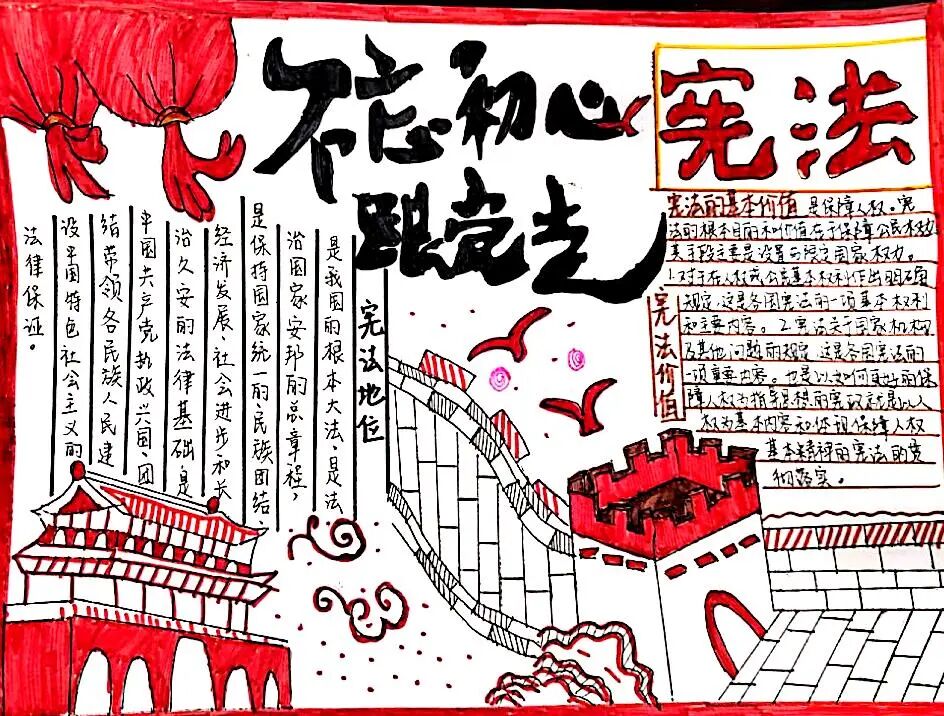 不忘初心
跟党走
宪法
宪法的基本价值 是保障人权。宪
法的根本目的和价值在于保障公民权力
其手段主要是设置与限定国家权力。
1.对于在人权或公民基本权利作出明确
规定,这是各国宪法的一项基本权利
和主要内容。2.宪法关于国家机权
及其他问题的规定,这是各国宪法的
一项重要内容。也是以如何更好的保
障人权为指导思想的宪政就是以人
权为基本内容和体现保障人权
基本精神的宪法的贯
彻落实。
宪法价值
宪法地位
是我国的根本大法,是法
治国家安邦的总章程,
是保持国家统一的、民族团结、
经济发展、社会进步和长
治久安的法律基础,是
中国共产党执政兴国、团
结带领各民族人民建
设中国特色社会主义的
法律保证。